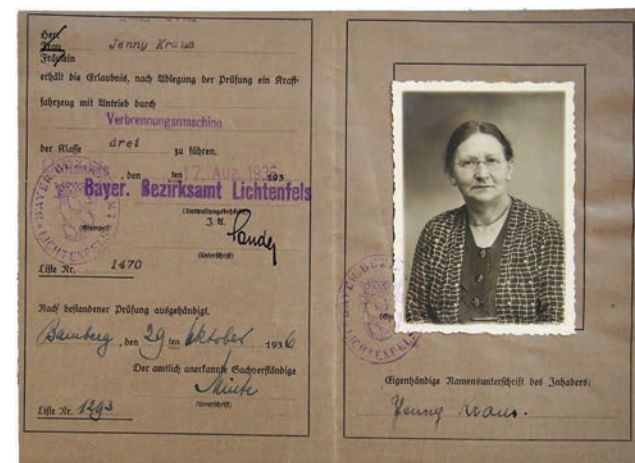 Herr
Frau Jenny Kraus
Fräulein
erhält die Erlaubnis, nach Ablegung der Prüfung ein Kraft-
fahrzeug mit Antrieb durch
Verbrennungsmaschine
der Klasse drei zu führen.
, den ten 17. Aug. 1936 193
Bayer. Bezirksamt Lichtenfels
(Verwaltungsbehörde)
J. A.
(Stempel)
(Unterschrift)
BAYER. BEZIRKSAMT LICHTENFELS
Liste Nr. 1470
Nach bestandener Prüfung ausgehändigt.
Bamberg, den 29 ten Oktober 1936
Der amtlich anerkannte Sachverständige
(Unterschrift)
Liste Nr. 1293
BAYER. BEZ
LICHTENFELS
Eigenhändige Namensunterschrift des Inhabers:
Jenny Kraus.